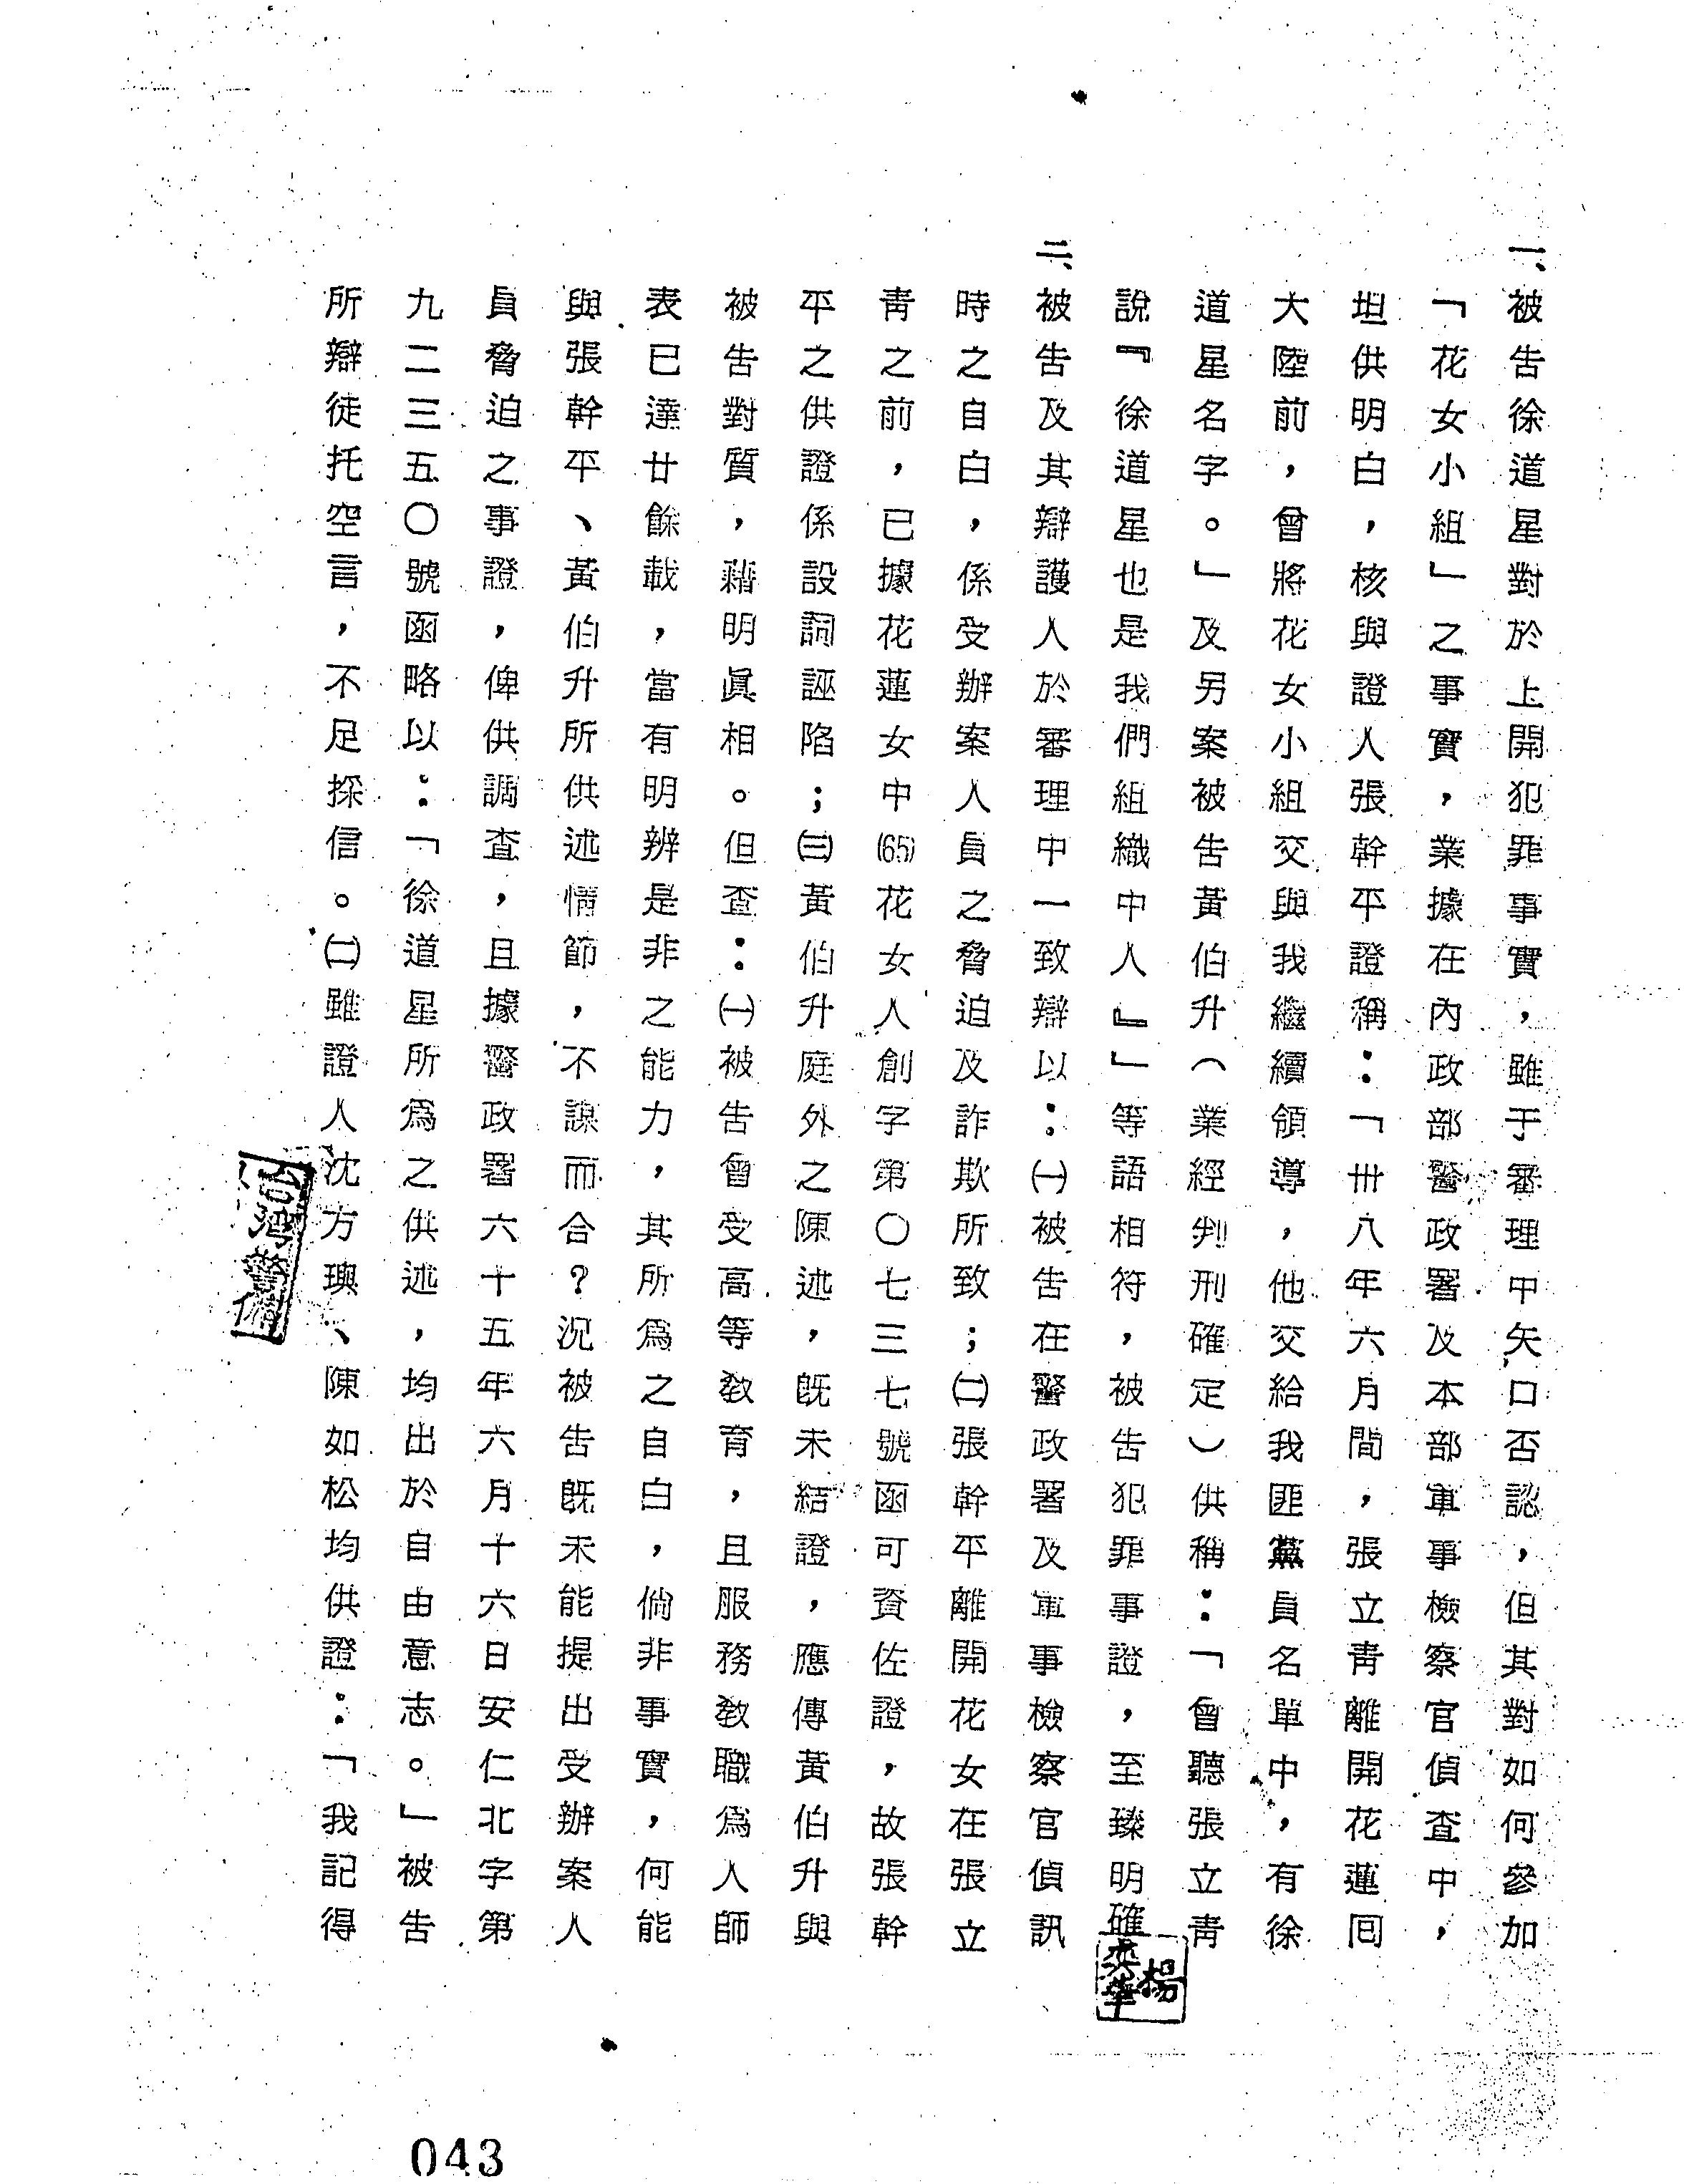 一、被告徐道星對於上開犯罪事實，雖于審理中矢口否認，但其對如何參加
「花女小組」之事實，業據在內政部警政署及本部軍事檢察官偵查中，
坦供明白，核與證人張幹平證稱：「卅八年六月間，張立青離開花蓮囘
大陸前，曾將花女小組交與我繼續領導，他交給我匪黨員名單中，有徐
道星名字。」及另案被告黃伯升（業經判刑確定）供稱：「曾聽張立青
說『徐道星也是我們組織中人』」等語相符，被告犯罪事證，至臻明確
二、被告及其辯護人於審理中一致辯以：㈠被告在警政署及軍事檢察官偵訊
時之自白，係受辦案人員之脅迫及詐欺所致；㈡張幹平離開花女在張立
青之前，已據花蓮女中(65)花女人創字第〇七三七號函可資佐證，故張幹
平之供證係設詞誣陷；㈢黃伯升庭外之陳述，既未結證，應傳黃伯升與
被告對質，藉明眞相。但查：㈠被告曾受高等教育，且服務教職爲人師
表已達廿餘載，當有明辨是非之能力，其所爲之自白，倘非事實，何能
與張幹平、黃伯升所供述情節，不謀而合？況被告既未能提出受辦案人
員脅迫之事證，俾供調查，且據警政署六十五年六月十六日安仁北字第
九二三五〇號函略以：「徐道星所爲之供述，均出於自由意志。」被告
所辯徒托空言，不足採信。㈡雖證人沈方璵、陳如松均供證：「我記得
台灣警備
楊
043